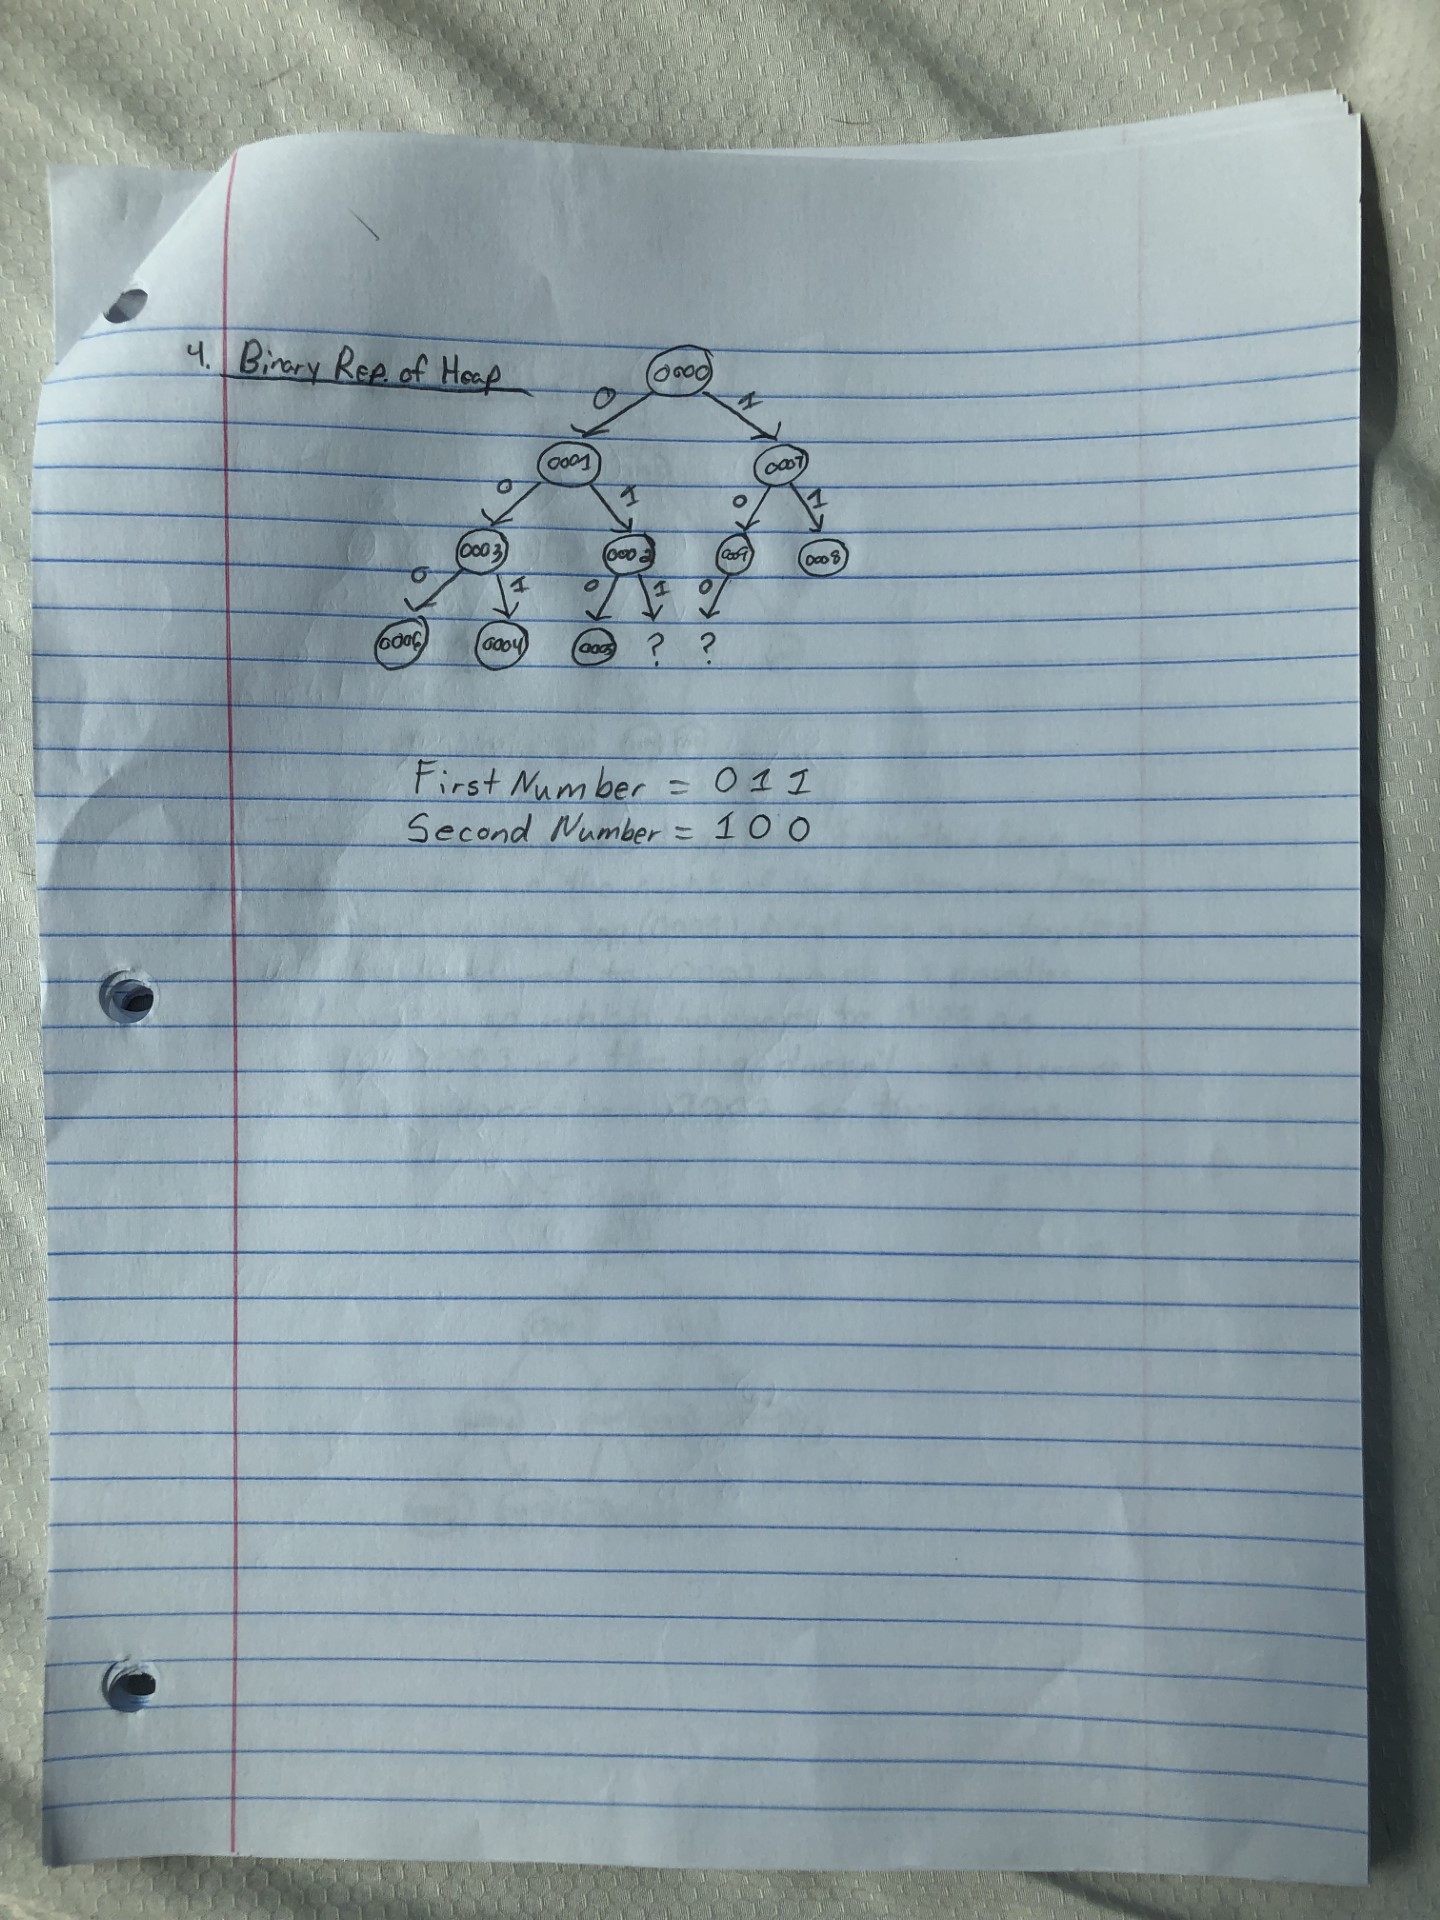 4. Binary Rep. of Heap
0000
0 1
0001 0007
0 1 0 1
0003 0002 0009 0008
0 1 0 1 0
0006 0004 0005 ? ?
First Number = 0 1 1
Second Number = 1 0 0